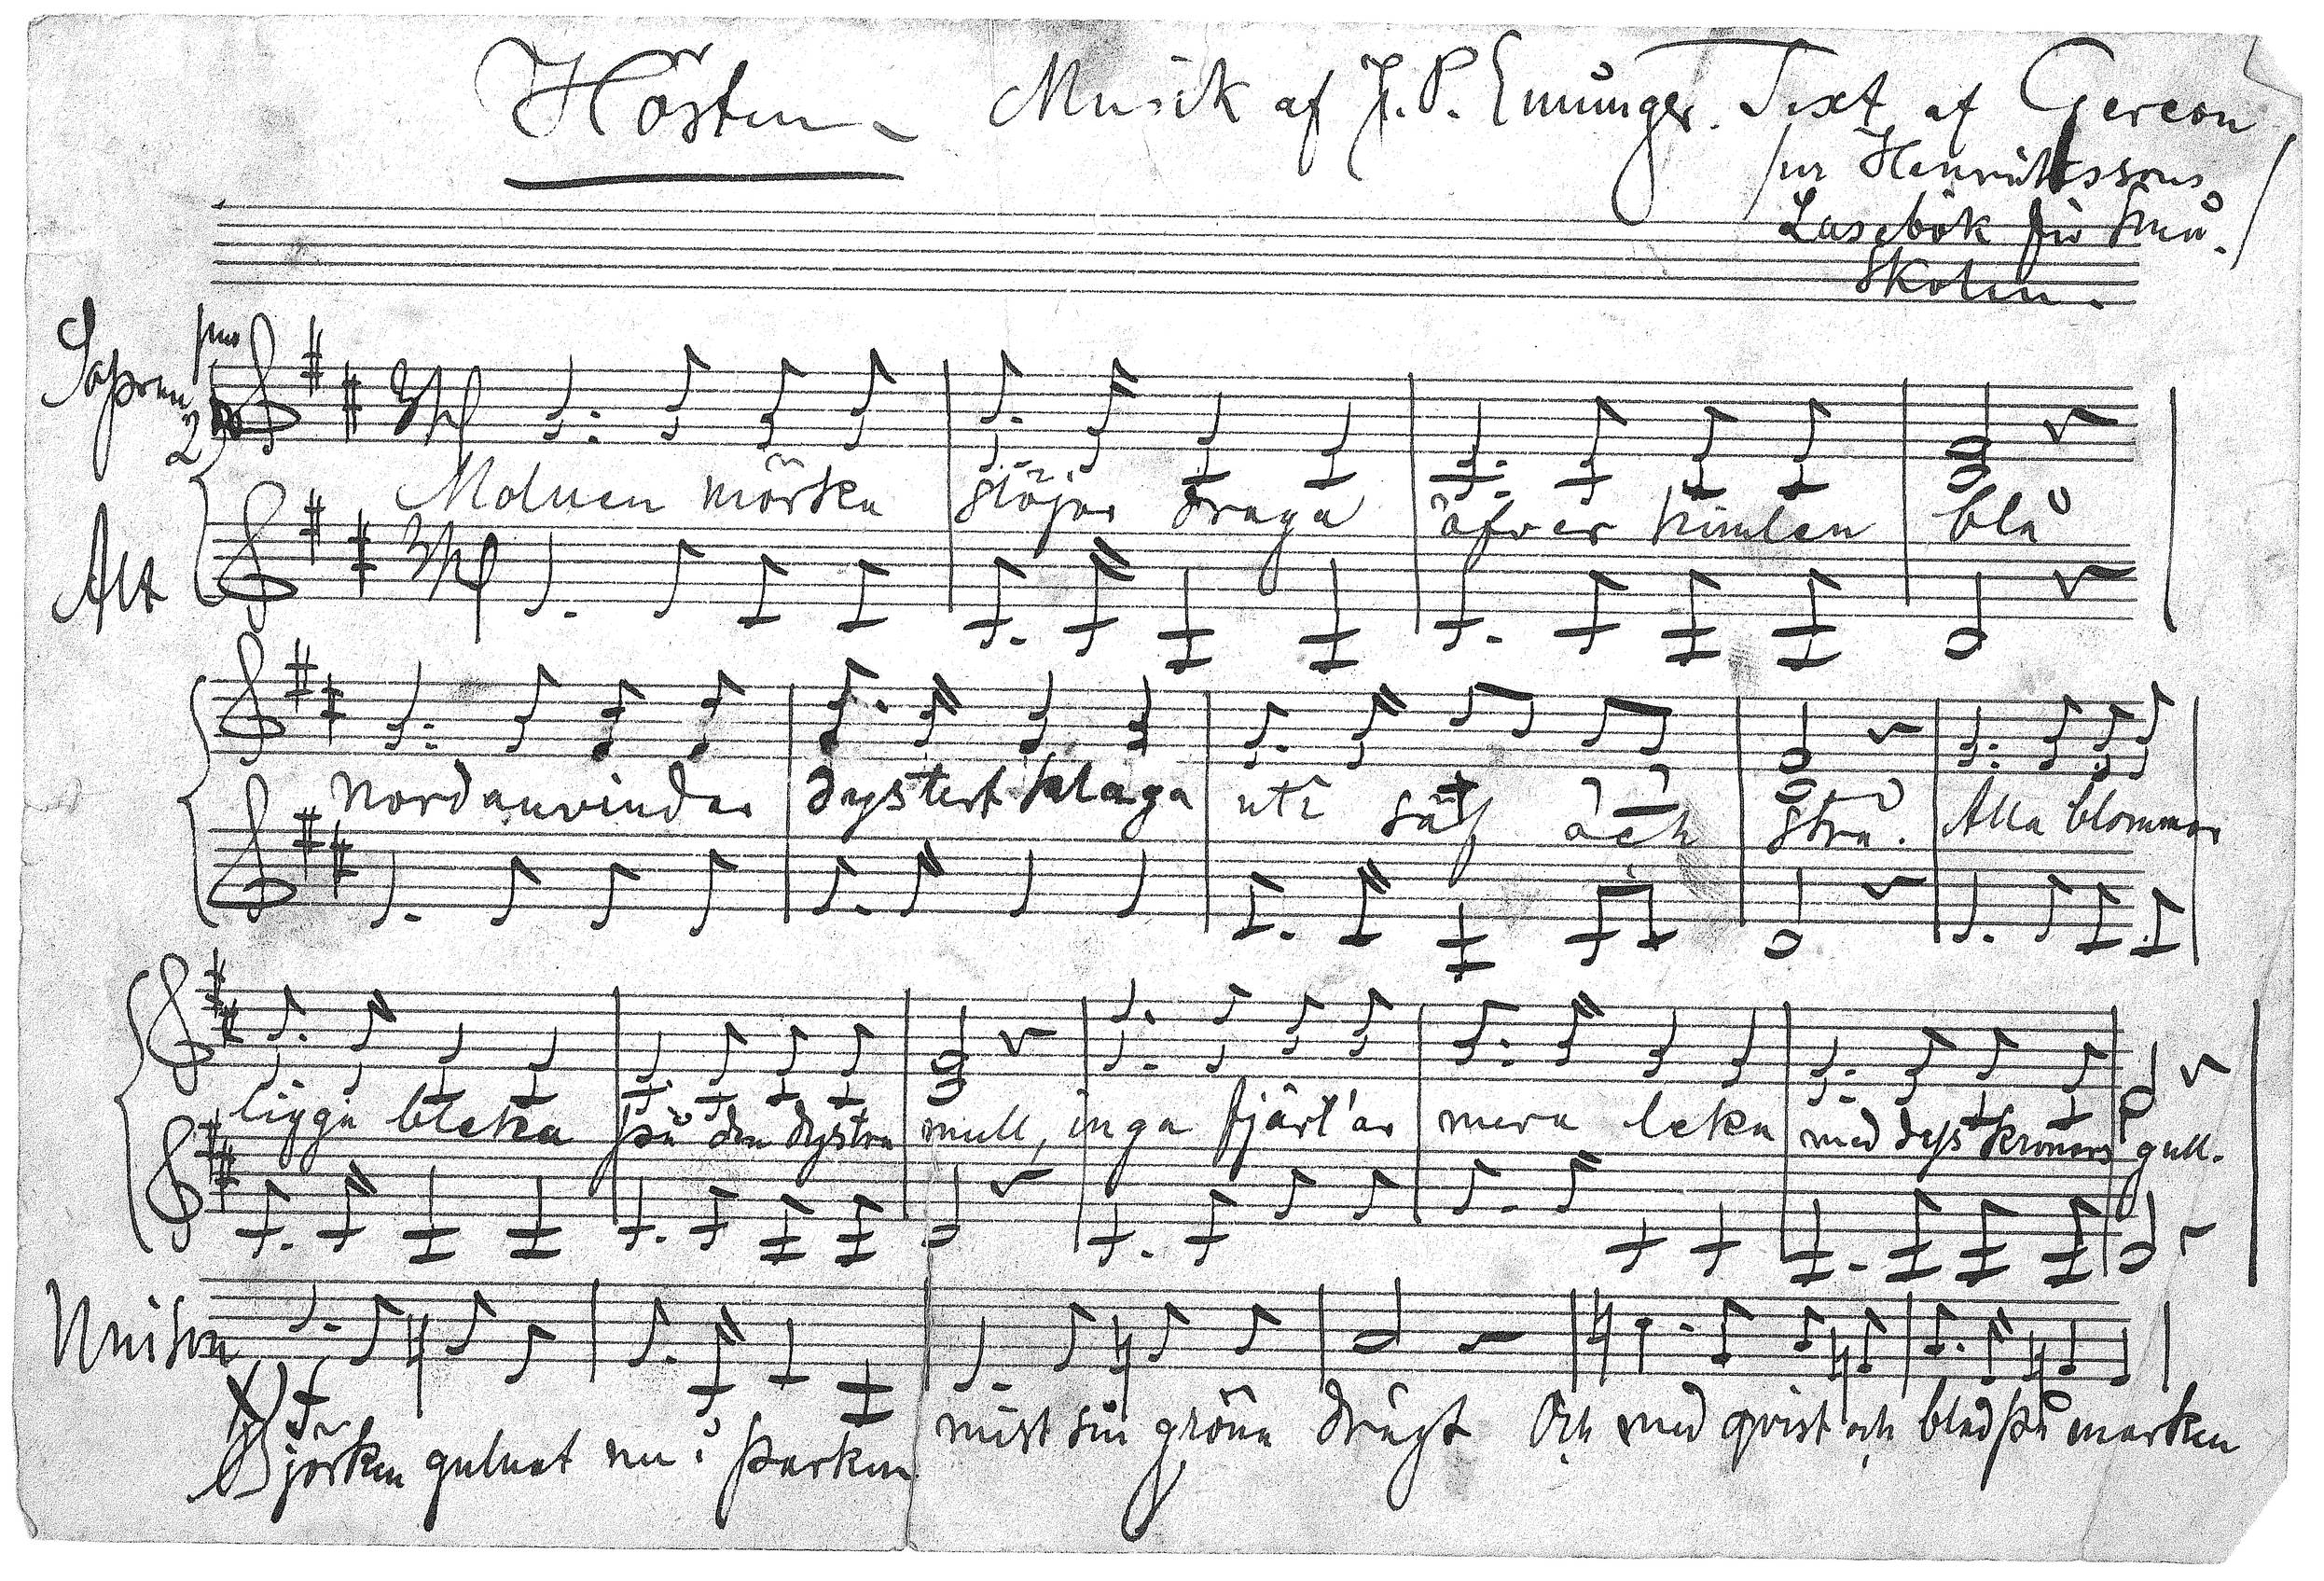 Hösten. Musik af J. P. Emånger. Text af Gereon
/ur Henrikssons
Läsebok för små-
skolan./
Sopran
1 mo
2
Molnen mörka slöjor draga öfver himlen blå
Alt
nordanvindar dystert klaga uti säf och strå. Alla blommor
ligga bleka på den dystra mull, inga fjäril'ar mera leka med dess kronors gull.
Unison
Björken gulnat nu i parken mist sin gröna drägt Och med qvist och blad på marken